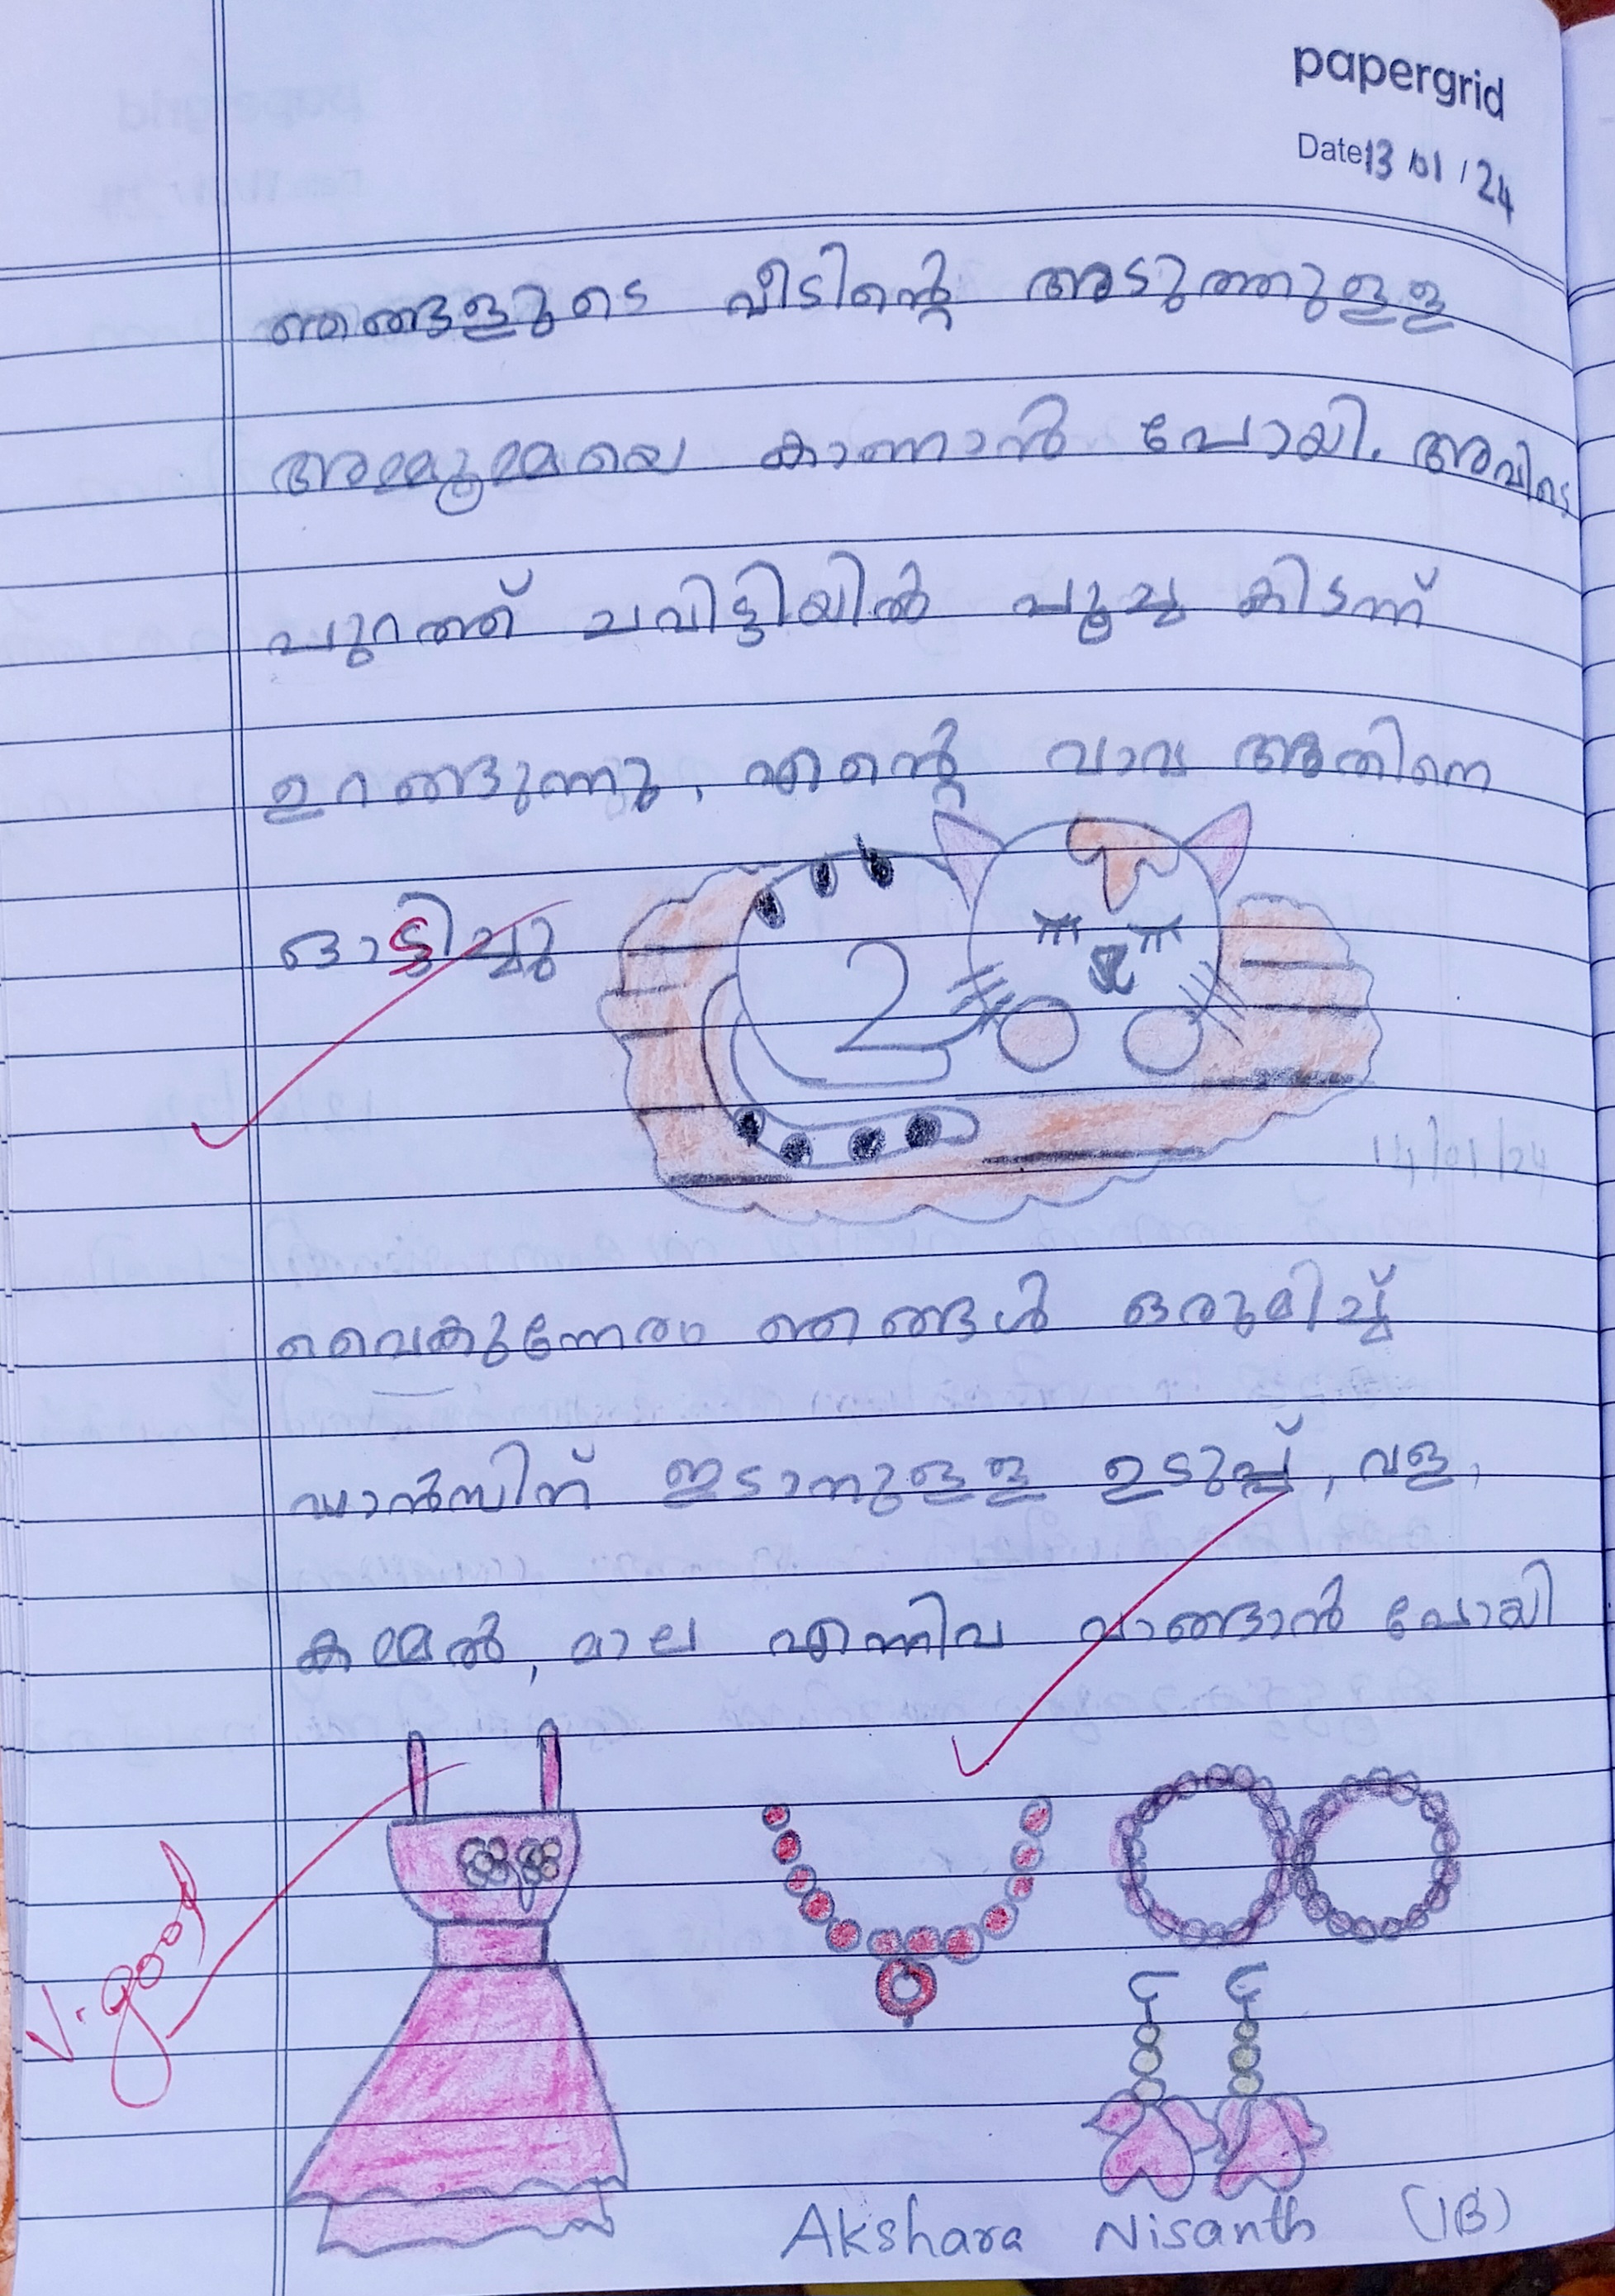 papergrid
Date 13/01/24
ഞങ്ങളുടെ വീടിന്റെ അടുത്തുള്ള
അമ്മൂമ്മയെ കാണാൻ പോയി. അവിടെ
പുറത്ത് ചവിട്ടിയിൽ പൂച്ച കിടന്ന്
ഉറങ്ങുന്നു. എന്റെ വാവ അതിനെ
ഓടിച്ചു
വൈകുന്നേരം ഞങ്ങൾ ഒരുമിച്ച്
ഡാൻസിന് ഇടാനുള്ള ഉടുപ്പ്, വള,
കമ്മൽ, മാല എന്നിവ വാങ്ങാൻ പോയി
V. good
Akshara Nisanth (1B)